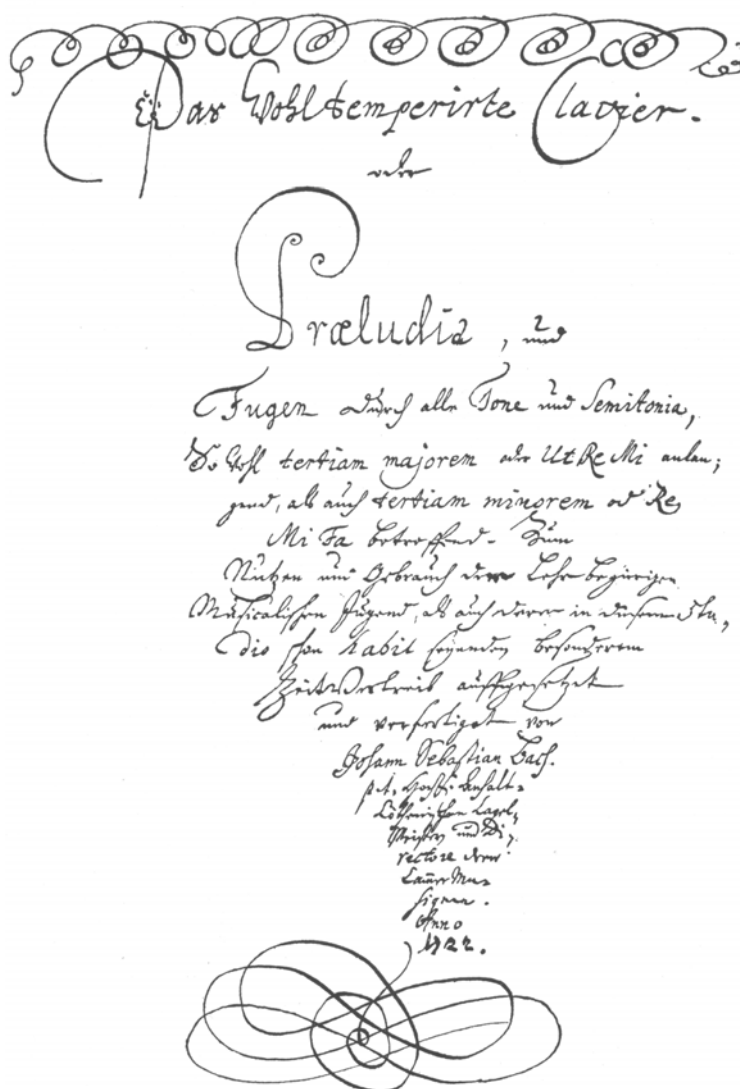 Das Wohltemperirte Clavier.
oder
Præludia, und
Fugen durch alle Tone und Semitonia,
So wohl tertiam majorem oder Ut Re Mi anlan-
gend, als auch tertiam minorem oder Re
Mi Fa betreffend. Zum
Nutzen und Gebrauch der Lehrbegierigen
Musicalischen Jugend, als auch derer in diesem stu-
dio schon habil seyenden besonderem
ZeitVertreib auffgesetzet
und verfertiget von
Johann Sebastian Bach.
p. t. Hochf. Anhalt-
Cöthenischen Capel-
Meistern und Di-
rectore derer
Cammer Mu-
siquen.
Anno
1722.